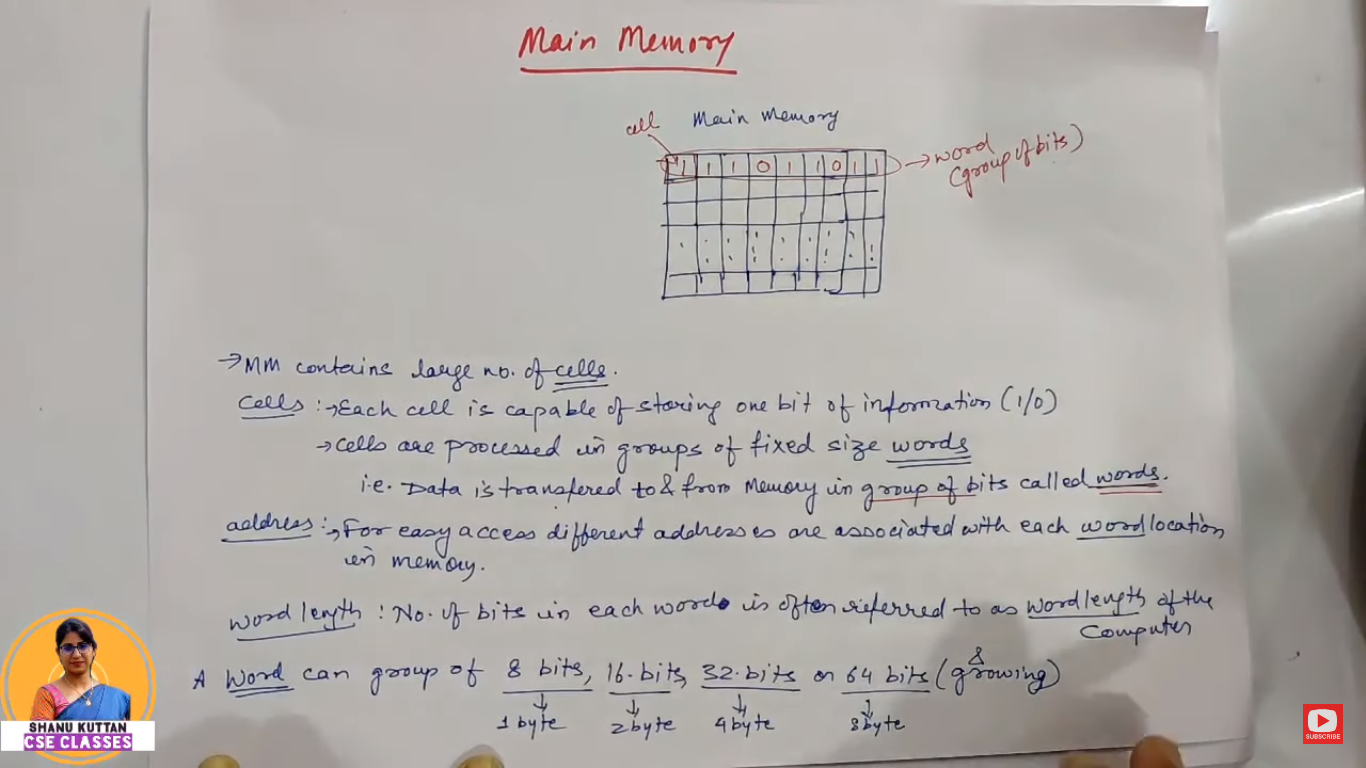 Main Memory
cell Main Memory
1 1 1 0 1 1 0 1 1 → word
(group of bits)
→ MM contains large no. of cells.
cells :→ Each cell is capable of storing one bit of information (1/0)
→ cells are processed in groups of fixed size words
i.e. Data is transfered to & from Memory in group of bits called words.
address :→ For easy access different addresses are associated with each word location
in memory.
word length : No. of bits in each word is often referred to as wordlength of the
Computer
A word can group of 8 bits, 16. bits, 32. bits or 64 bits (& growing)
1 byte 2 byte 4 byte 8 byte
SHANU KUTTAN
CSE CLASSES
SUBSCRIBE